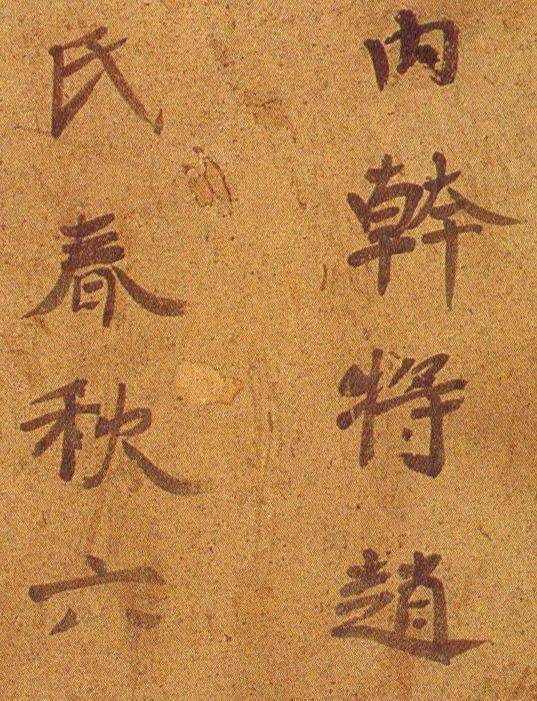 內幹將趙
氏春秋六